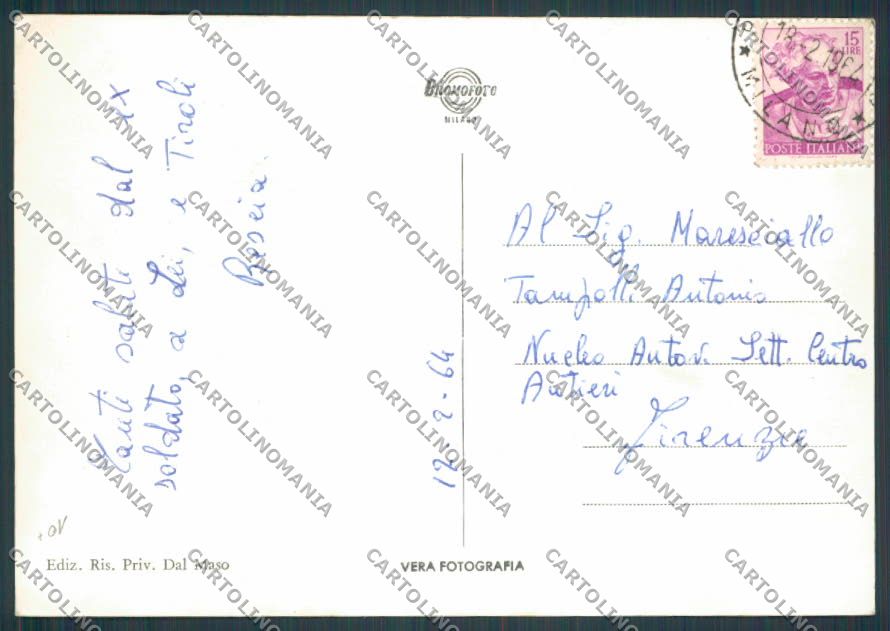 Bromofoto
MILANO
15 LIRE
POSTE ITALIANE
18-2 1964
MILANO
Tanti saluti dal ex
soldato, a Lei, e Tiroli
Brescia.
12-2-64
Al Sig. Maresciallo
Tampolli Antonio
Nucleo Autov. Sett. Centro
Autieri
Firenze
+OV
Ediz. Ris. Priv. Dal Maso
VERA FOTOGRAFIA
CARTOLINOMANIA